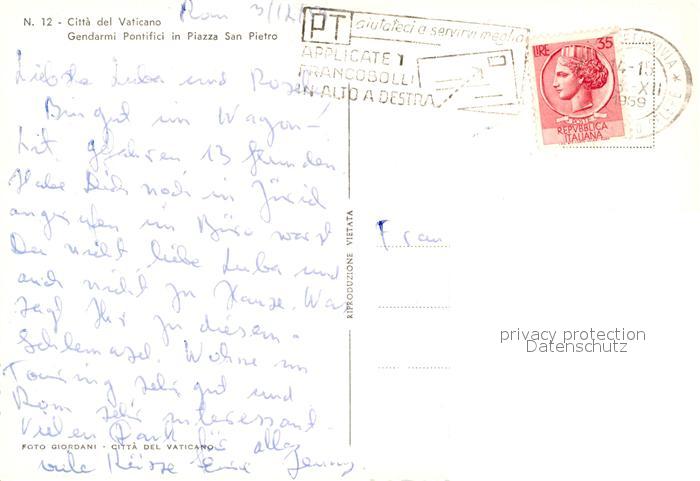 N. 12 - Città del Vaticano
Gendarmi Pontifici in Piazza San Pietro
Rom 3/12/
PT aiutateci a servirvi meglio
APPLICATE I
FRANCOBOLLI
IN ALTO A DESTRA
LIRE 35
POSTE
REPVBBLICA
ITALIANA
4-15
3-XII
1959
Liebste Luba und
Bin gut im Wagon-
Lit. gefahren 13 Stunden.
Habe Dich noch in Zürich
angerufen im Büro warst
Du nicht liebe Luba und
auch nicht zu Hause. Was
sagt Ihr zu diesem
Schlemasel. Wohne im
Touring sehr gut und
Rom sehr interessant.
Vielen Dank für alles
viele Küsse Eure Jenny.
FOTO GIORDANI - CITTÀ DEL VATICANO
RIPRODUZIONE VIETATA
Frau
privacy protection
Datenschutz